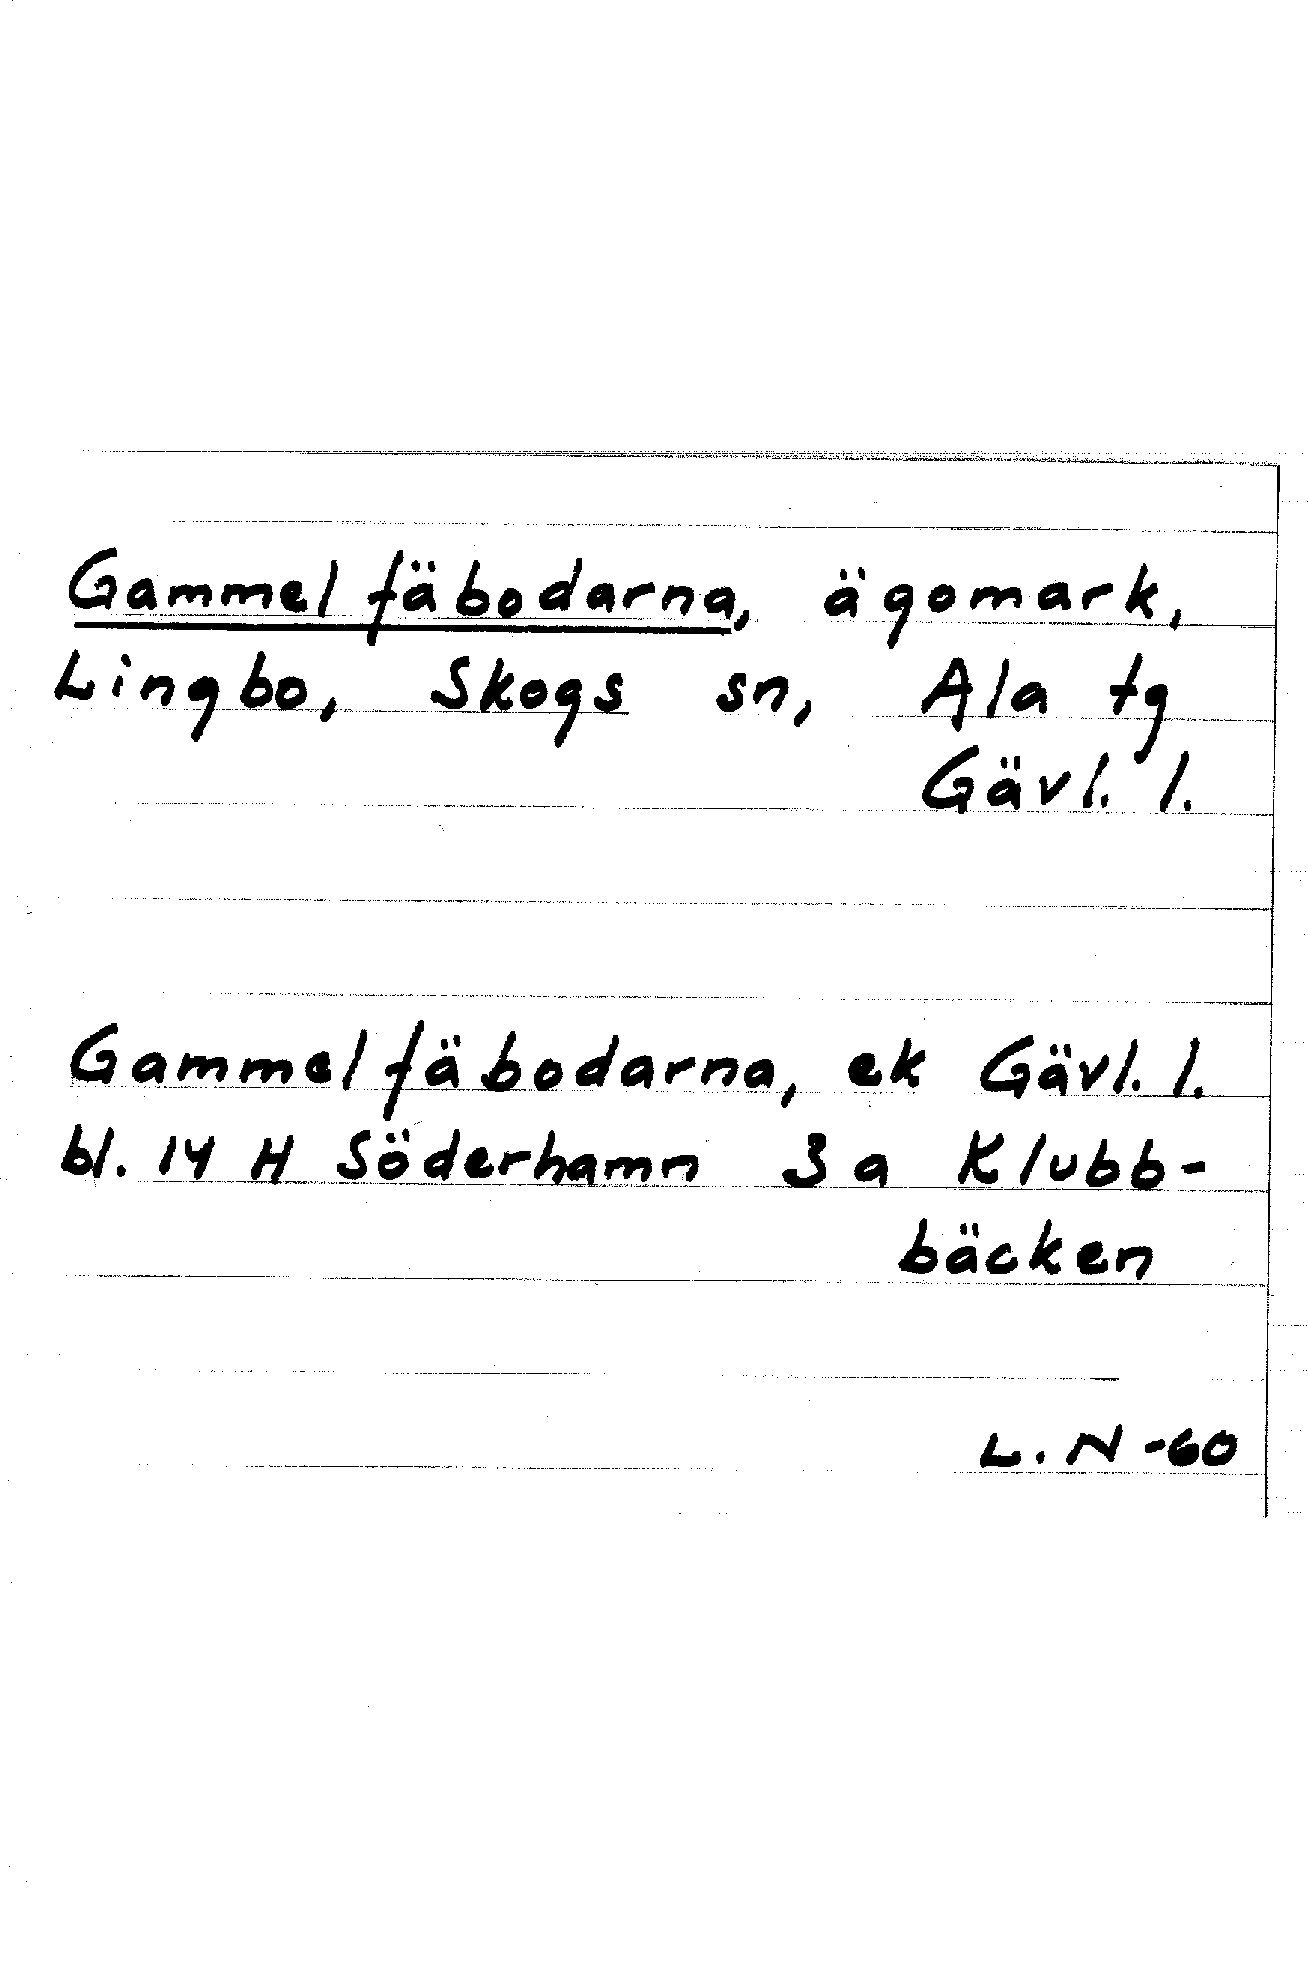 Gammelfäbodarna, ägomark,
Lingbo, Skogs sn, Ala tg
Gävl. l.
Gammelfäbodarna, ek Gävl. l.
bl. 14 H Söderhamn 3 a Klubb-
bäcken
L. N -60